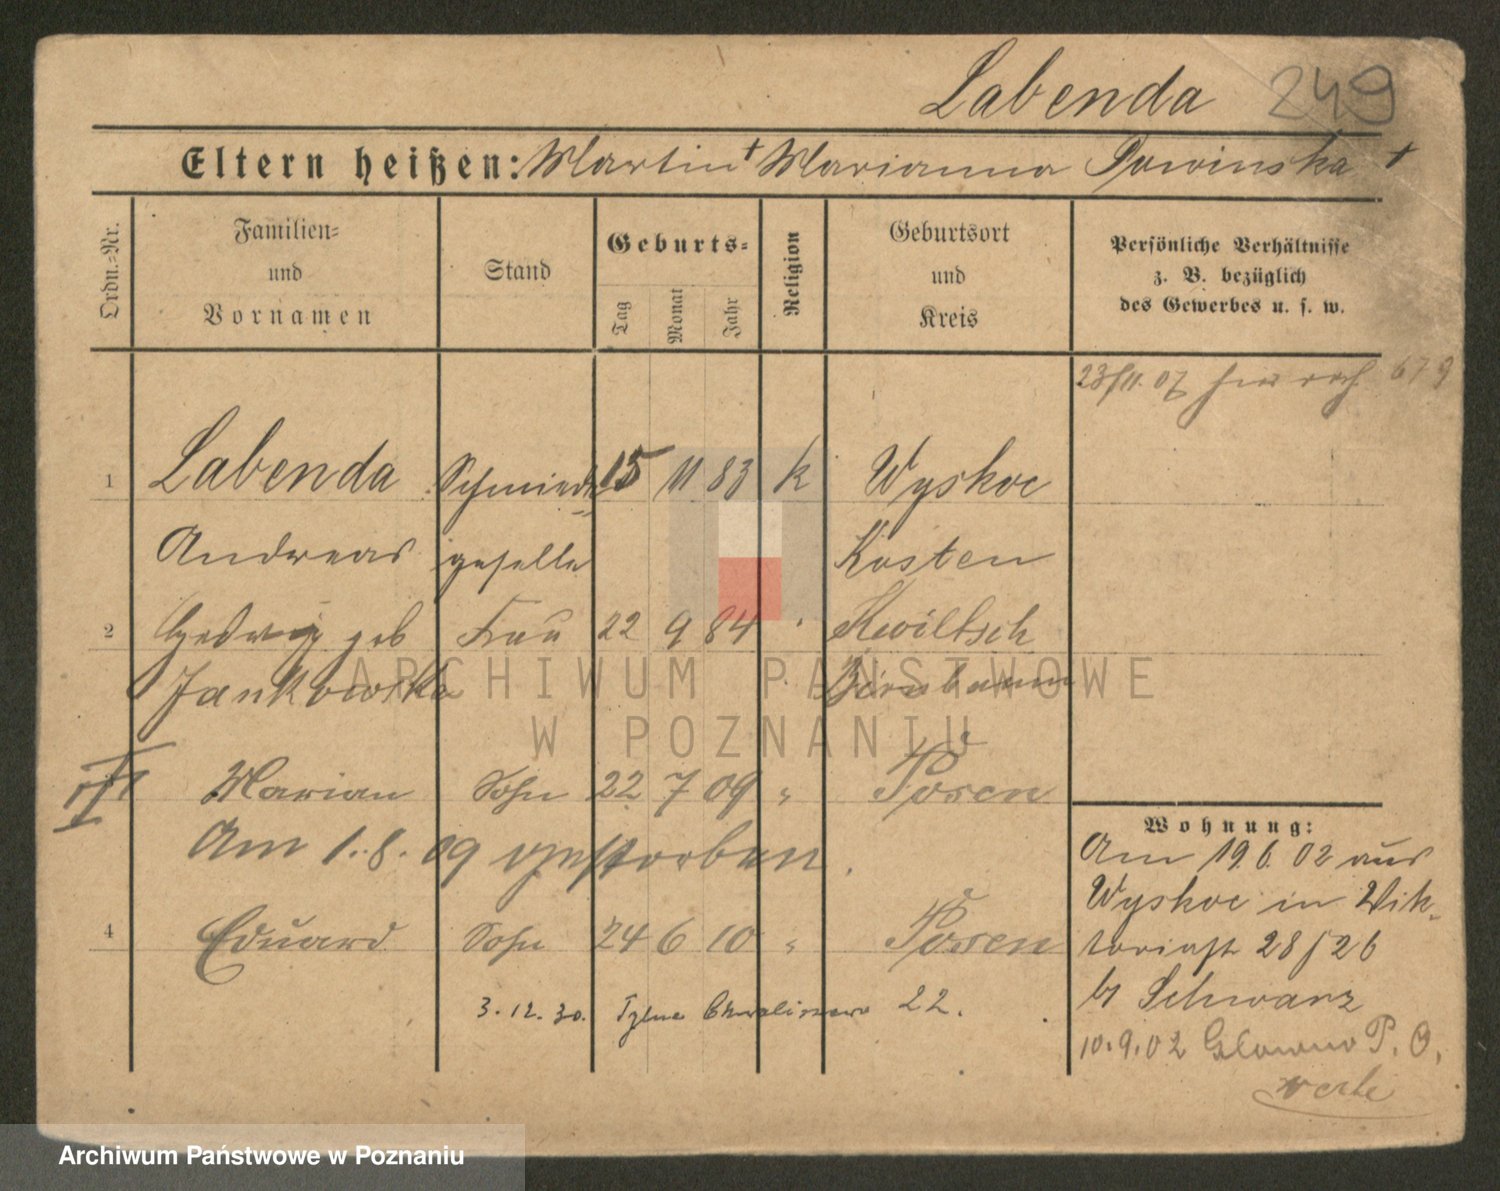 Labenda 249
Eltern heißen: Martin † Marianna †
Ordn.-Nr.
Familien-
und
Vornamen
Stand
Geburts-
Tag
Monat
Jahr
Religion
Geburtsort
und
Kreis
Persönliche Verhältnisse
z. B. bezüglich
des Gewerbes u. s. w.
23/11.07 679
1 Labenda Schmiede= 15 11 83 k Wyskoc
Andreas geselle Kosten
2 Hedwig geb Frau 22 9 84 " Kwiltsch
Jankowska Birnbaum
III Marian Sohn 22 7 09 " Posen
Am 1.8.09 gestorben.
4 Eduard Sohn 24 6 10 " Posen
3.12.30. 22.
Wohnung:
Am 19.6.02 aus
Wyskoc in Vik-
toriastr 28/26
b/ Schwarz
10.9.02 Glowno P. O.
ARCHIWUM PAŃSTWOWE
W POZNANIU
Archiwum Państwowe w Poznaniu